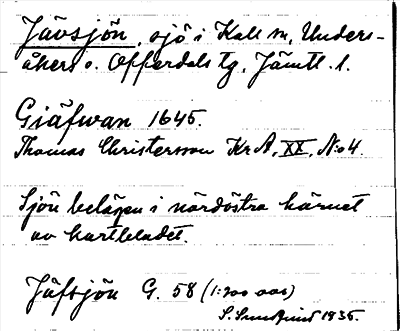 Jävsjön, sjö i Kall sn, Unders-
åkers o. Offerdals tg, Jämtl. l.
Giäfwan 1645.
Thomas Christersson KrA, XX, No 4.
Sjön belägen i nordöstra hörnet
av kartbladet.
Jäfsjön G. 58 (1:200 000)
S. Sundquist 1935.